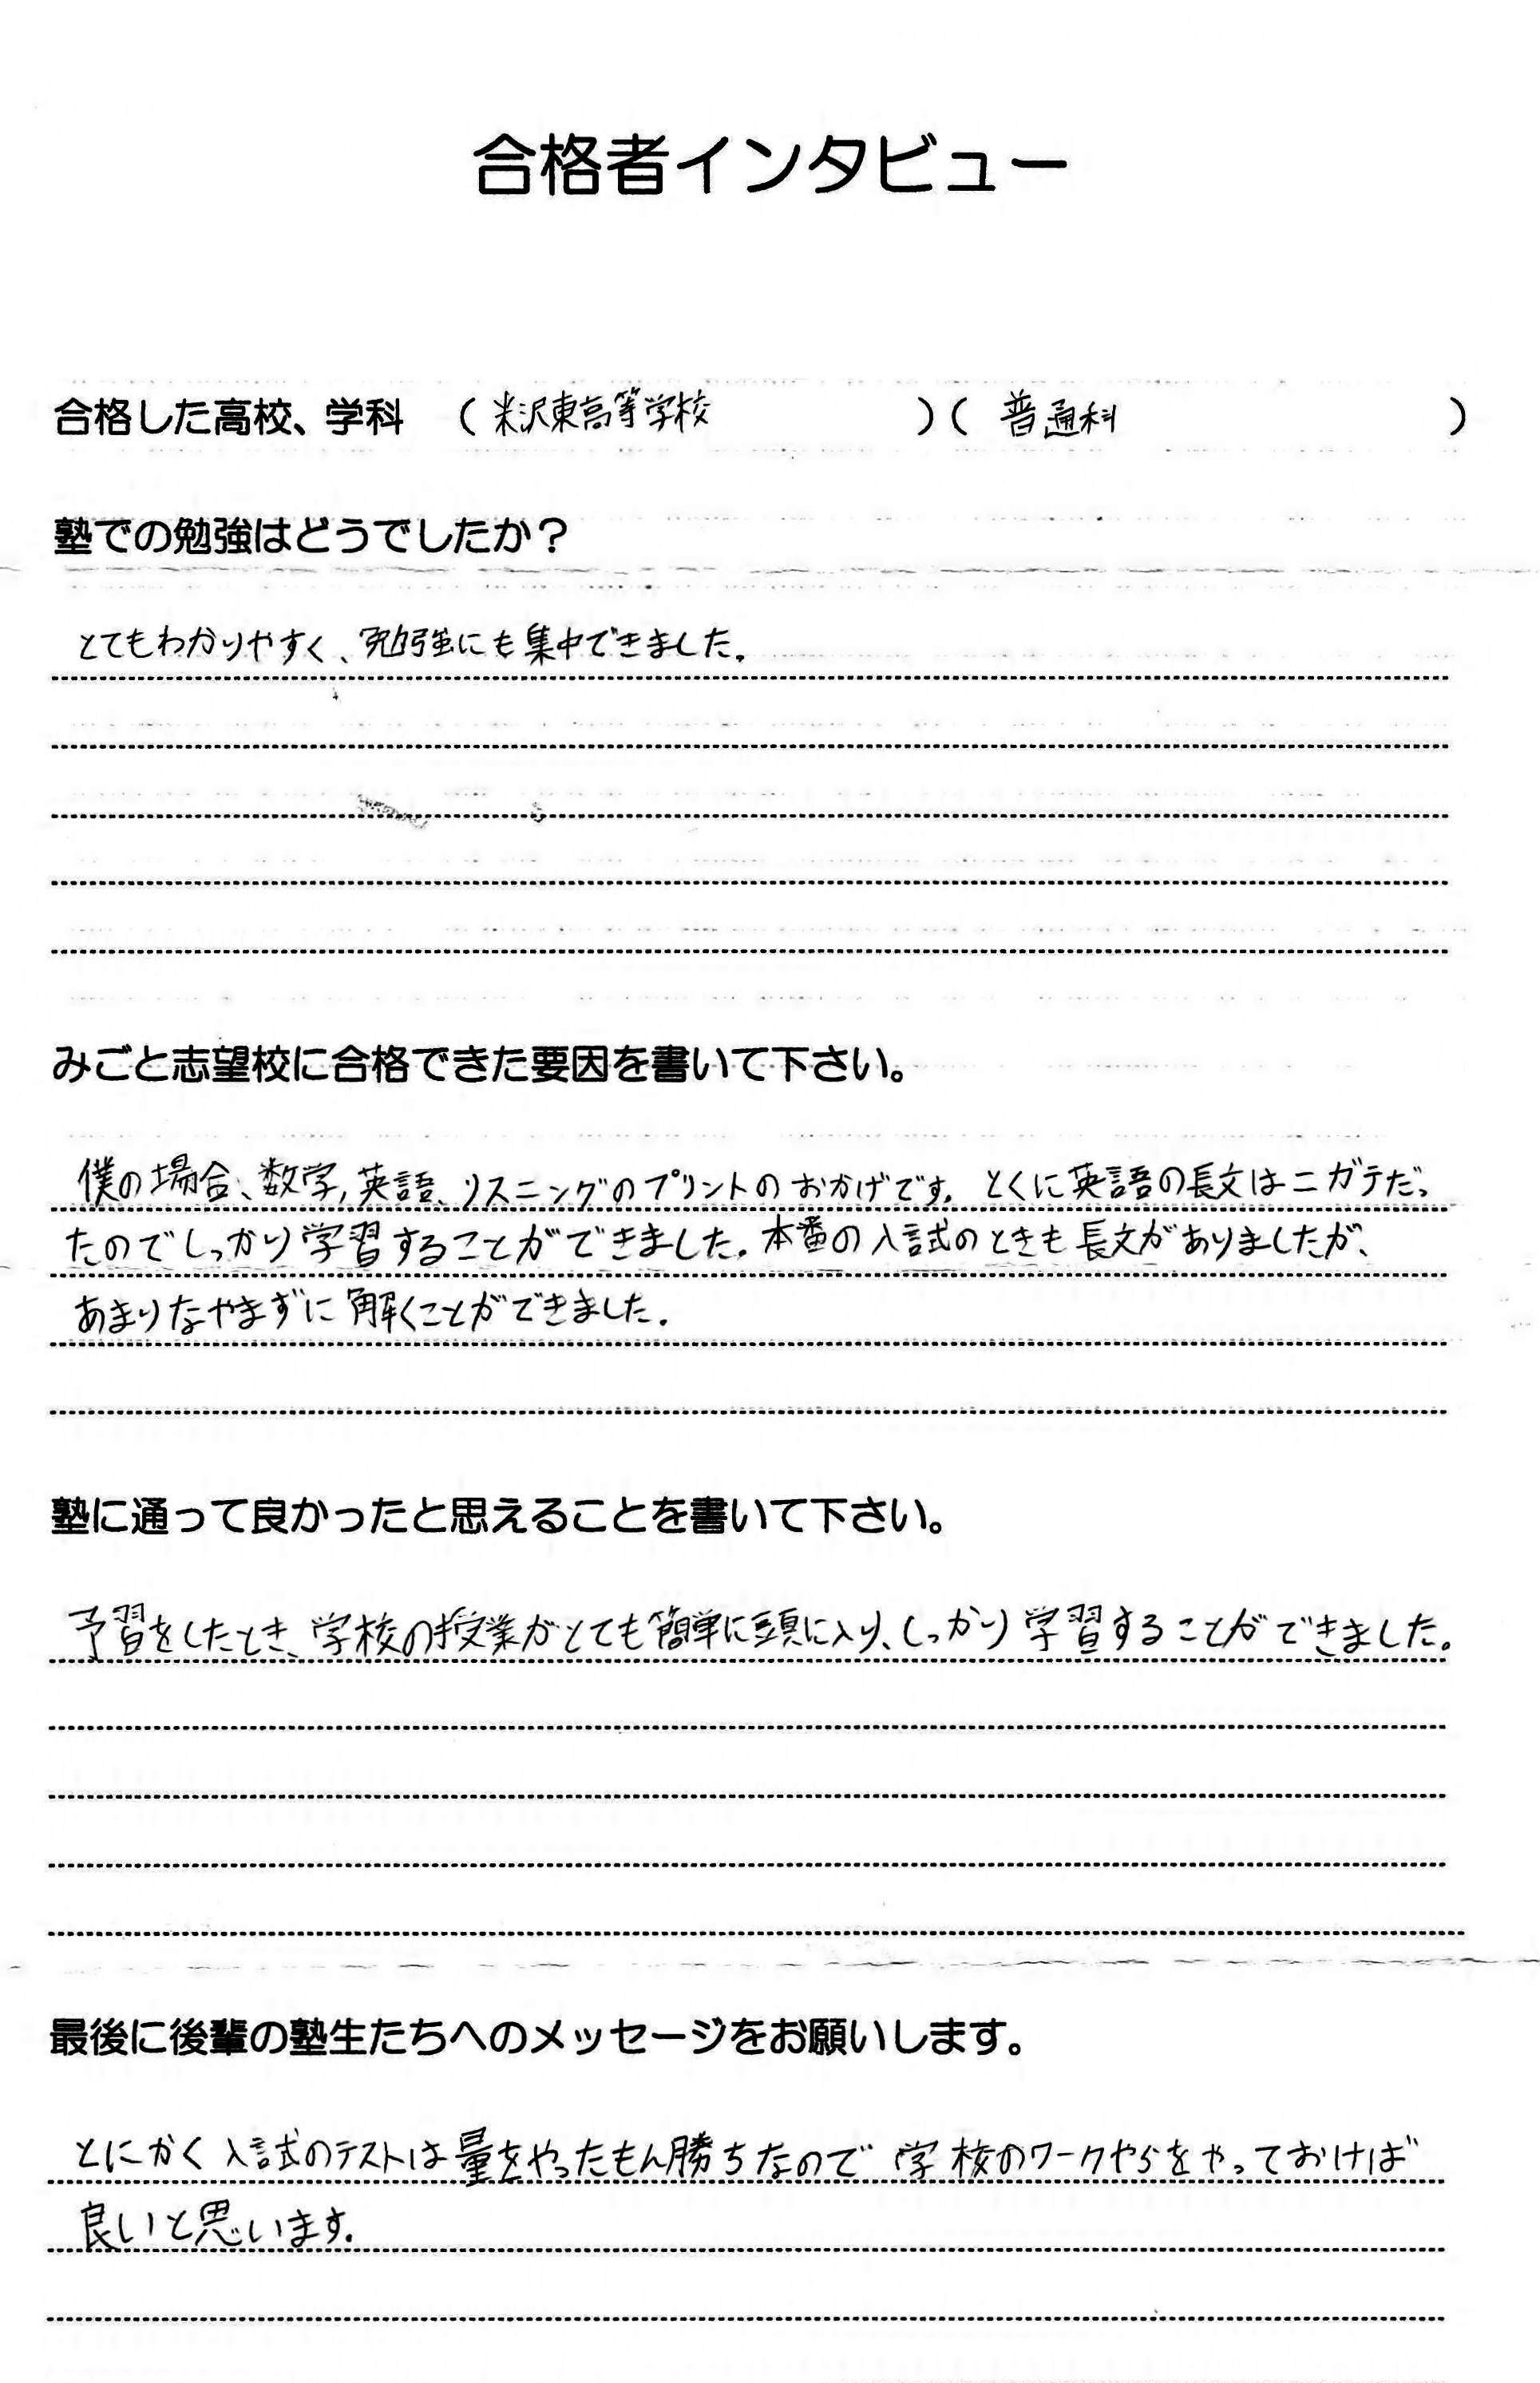 合格者インタビュー
合格した高校、学科 （米沢東高等学校）（普通科）
塾での勉強はどうでしたか？
とてもわかりやすく、勉強にも集中できました。
みごと志望校に合格できた要因を書いて下さい。
僕の場合、数学,英語、リスニングのプリントのおかげです。とくに英語の長文はニガテだっ
たのでしっかり学習することができました。本番の入試のときも長文がありましたが、
あまりなやまずに解くことができました。
塾に通って良かったと思えることを書いて下さい。
予習をしたとき、学校の授業がとても簡単に頭に入り、しっかり学習することができました。
最後に後輩の塾生たちへのメッセージをお願いします。
とにかく入試のテストは量をやったもん勝ちなので学校のワークやらをやっておけば
良いと思います。